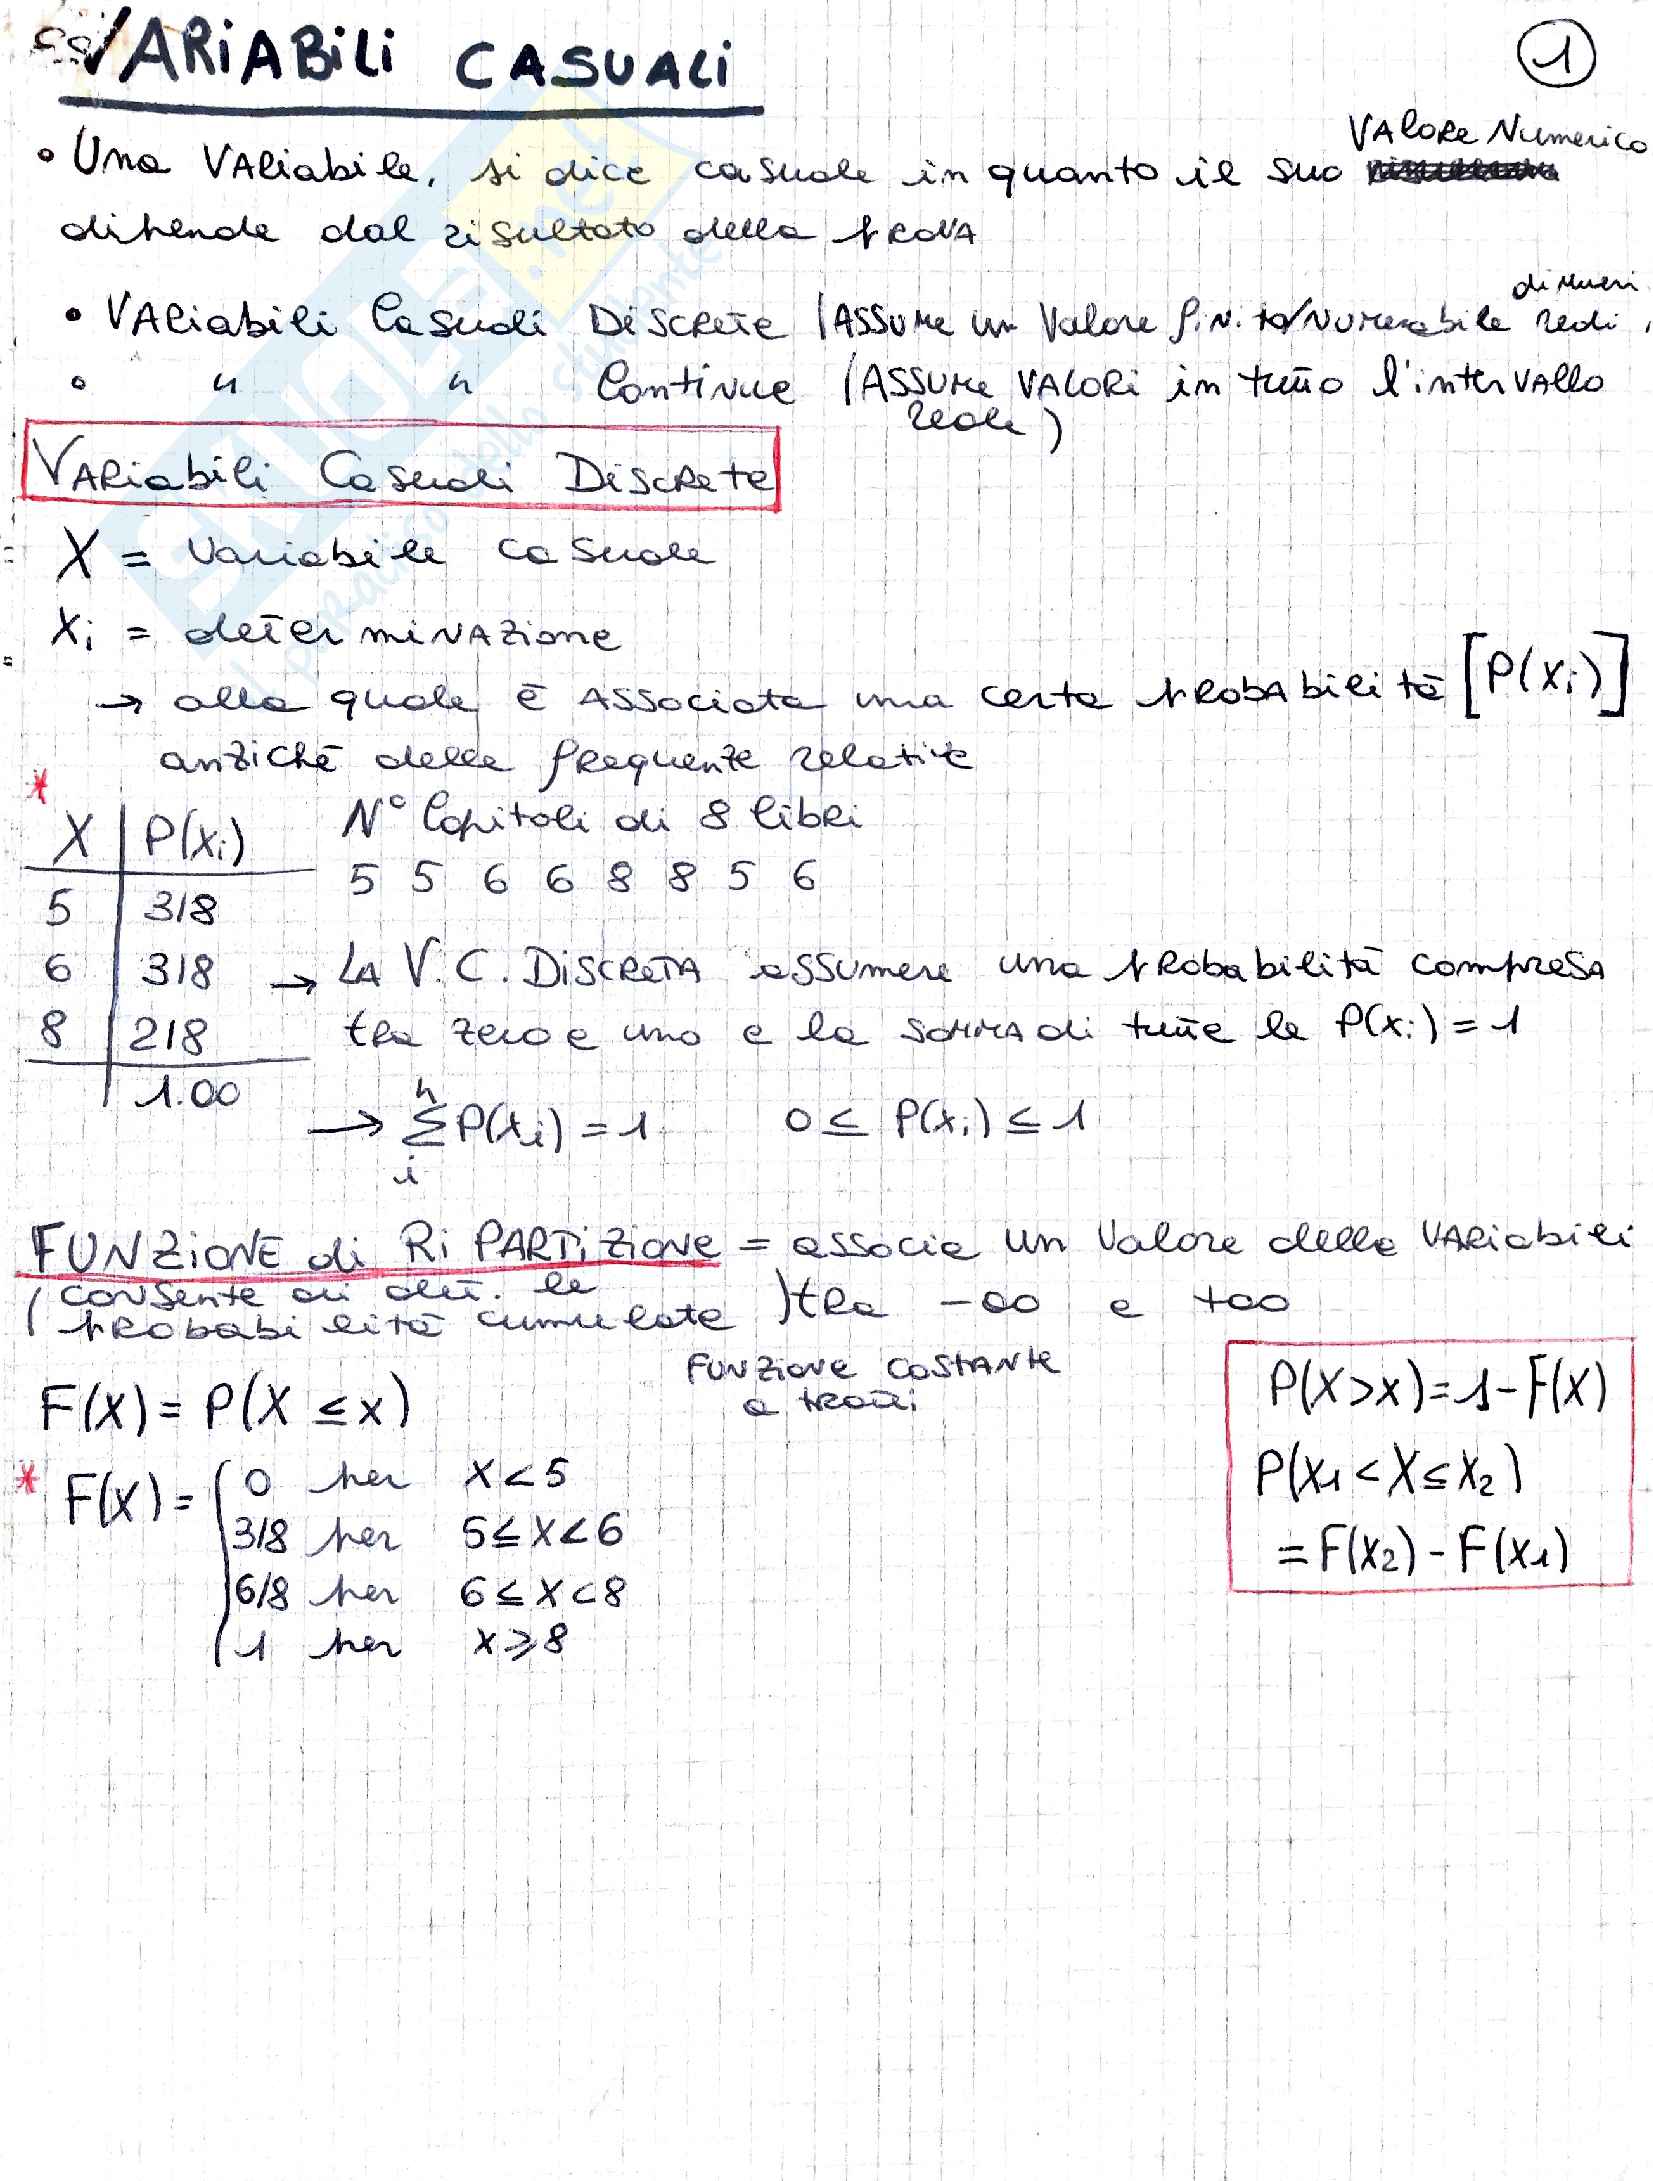 VARIABILI CASUALI
1
Valore Numerico
• Una Variabile, si dice casuale in quanto il suo
dipende dal risultato della prova
• Variabili Casuali Discrete (Assume un Valore finito/Numerabile di numeri reali,
• " " Continue (Assume VALORI in tutto l'intervallo
reale)
Variabili Casuali Discrete
X = Variabile casuale
xi = determinazione
→ alla quale è associata una certa probabilità [P(xi)]
anziché delle frequenze relative
*
X | P(xi)
5 | 3/8
6 | 3/8
8 | 2/8
1.00
N° Capitoli di 8 libri
5 5 6 6 8 8 5 6
→ LA V.C. DISCRETA assumere una probabilità compresa
tra zero e uno e la somma di tutte le P(xi) = 1
→ n Σ i P(xi) = 1   0 ≤ P(xi) ≤ 1
FUNZIONE di RiPARTiZIONE = associa un Valore delle VARiabili
(consente di det. le
probabilità cumulate) tra -∞ e +∞
FUNZIONE COSTANTE
a tratti
F(X) = P(X ≤ x)
* F(X) = { 0 per X < 5
3/8 per 5 ≤ X < 6
6/8 per 6 ≤ X < 8
1 per X ≥ 8
P(X > x) = 1 - F(X)
P(X1 < X ≤ X2)
= F(X2) - F(X1)